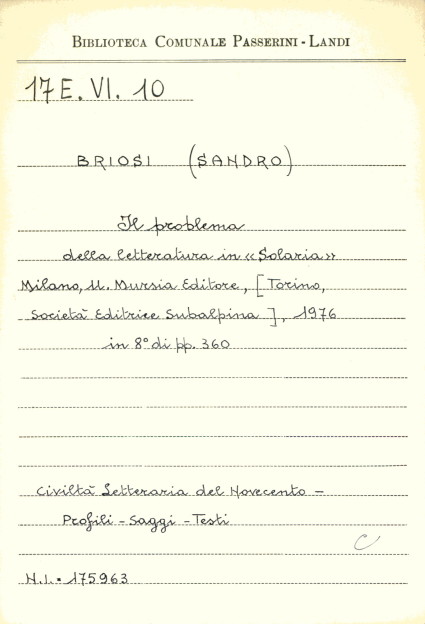 BIBLIOTECA COMUNALE PASSERINI - LANDI
17 E. VI. 10
BRIOSI (SANDRO)
Il problema
della letteratura in «Solaria»
Milano, U. Mursia Editore, [Torino,
Società Editrice Subalpina], 1976
in 8° di pp. 360
Civiltà Letteraria del Novecento -
Profili - Saggi - Testi
C
N.I. = 175963